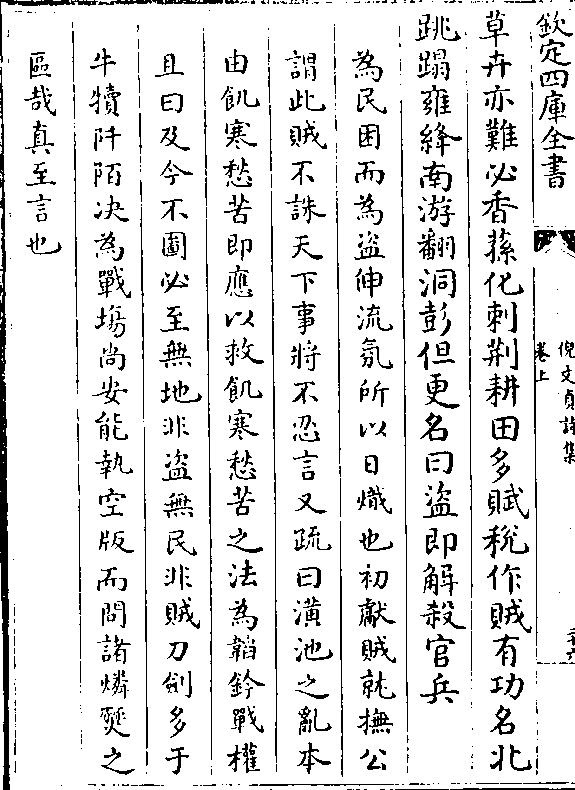 欽定四庫全書
倪文貞詩集
卷上
草卉亦難必香蓀化刺荆耕田多賦稅作賊有功名北
跳蹋雍絳南游翻洞彭但更名曰盜即解殺官兵
為民困而為盜伸流氛所以日熾也初獻賊就撫公
謂此賊不誅天下事將不忍言又疏曰潢池之亂本
由飢寒愁苦即應以救飢寒愁苦之法為韜鈐戰權
且曰及今不圖必至無地非盜無民非賊刀劍多于
牛犢阡陌決為戰塲尚安能執空版而問諸燐燹之
區哉真至言也